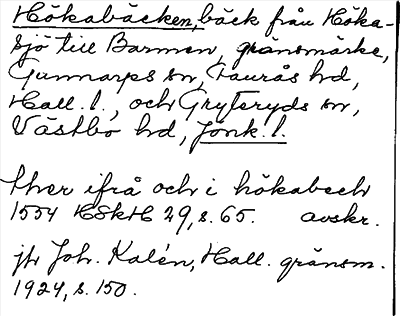 Hökabäcken, bäck från Höka-
sjö till Barmen, gränsmärke,
Gunnarps sn, Faurås hd,
Hall. l., och Gryteryds sn,
Västbo hd, Jönk. l.
ther ifrå och i hökabech
1554 HSkH 29, s. 65. avskr.
jfr Joh. Kalén, Hall. gränsm.
1924, s. 150.